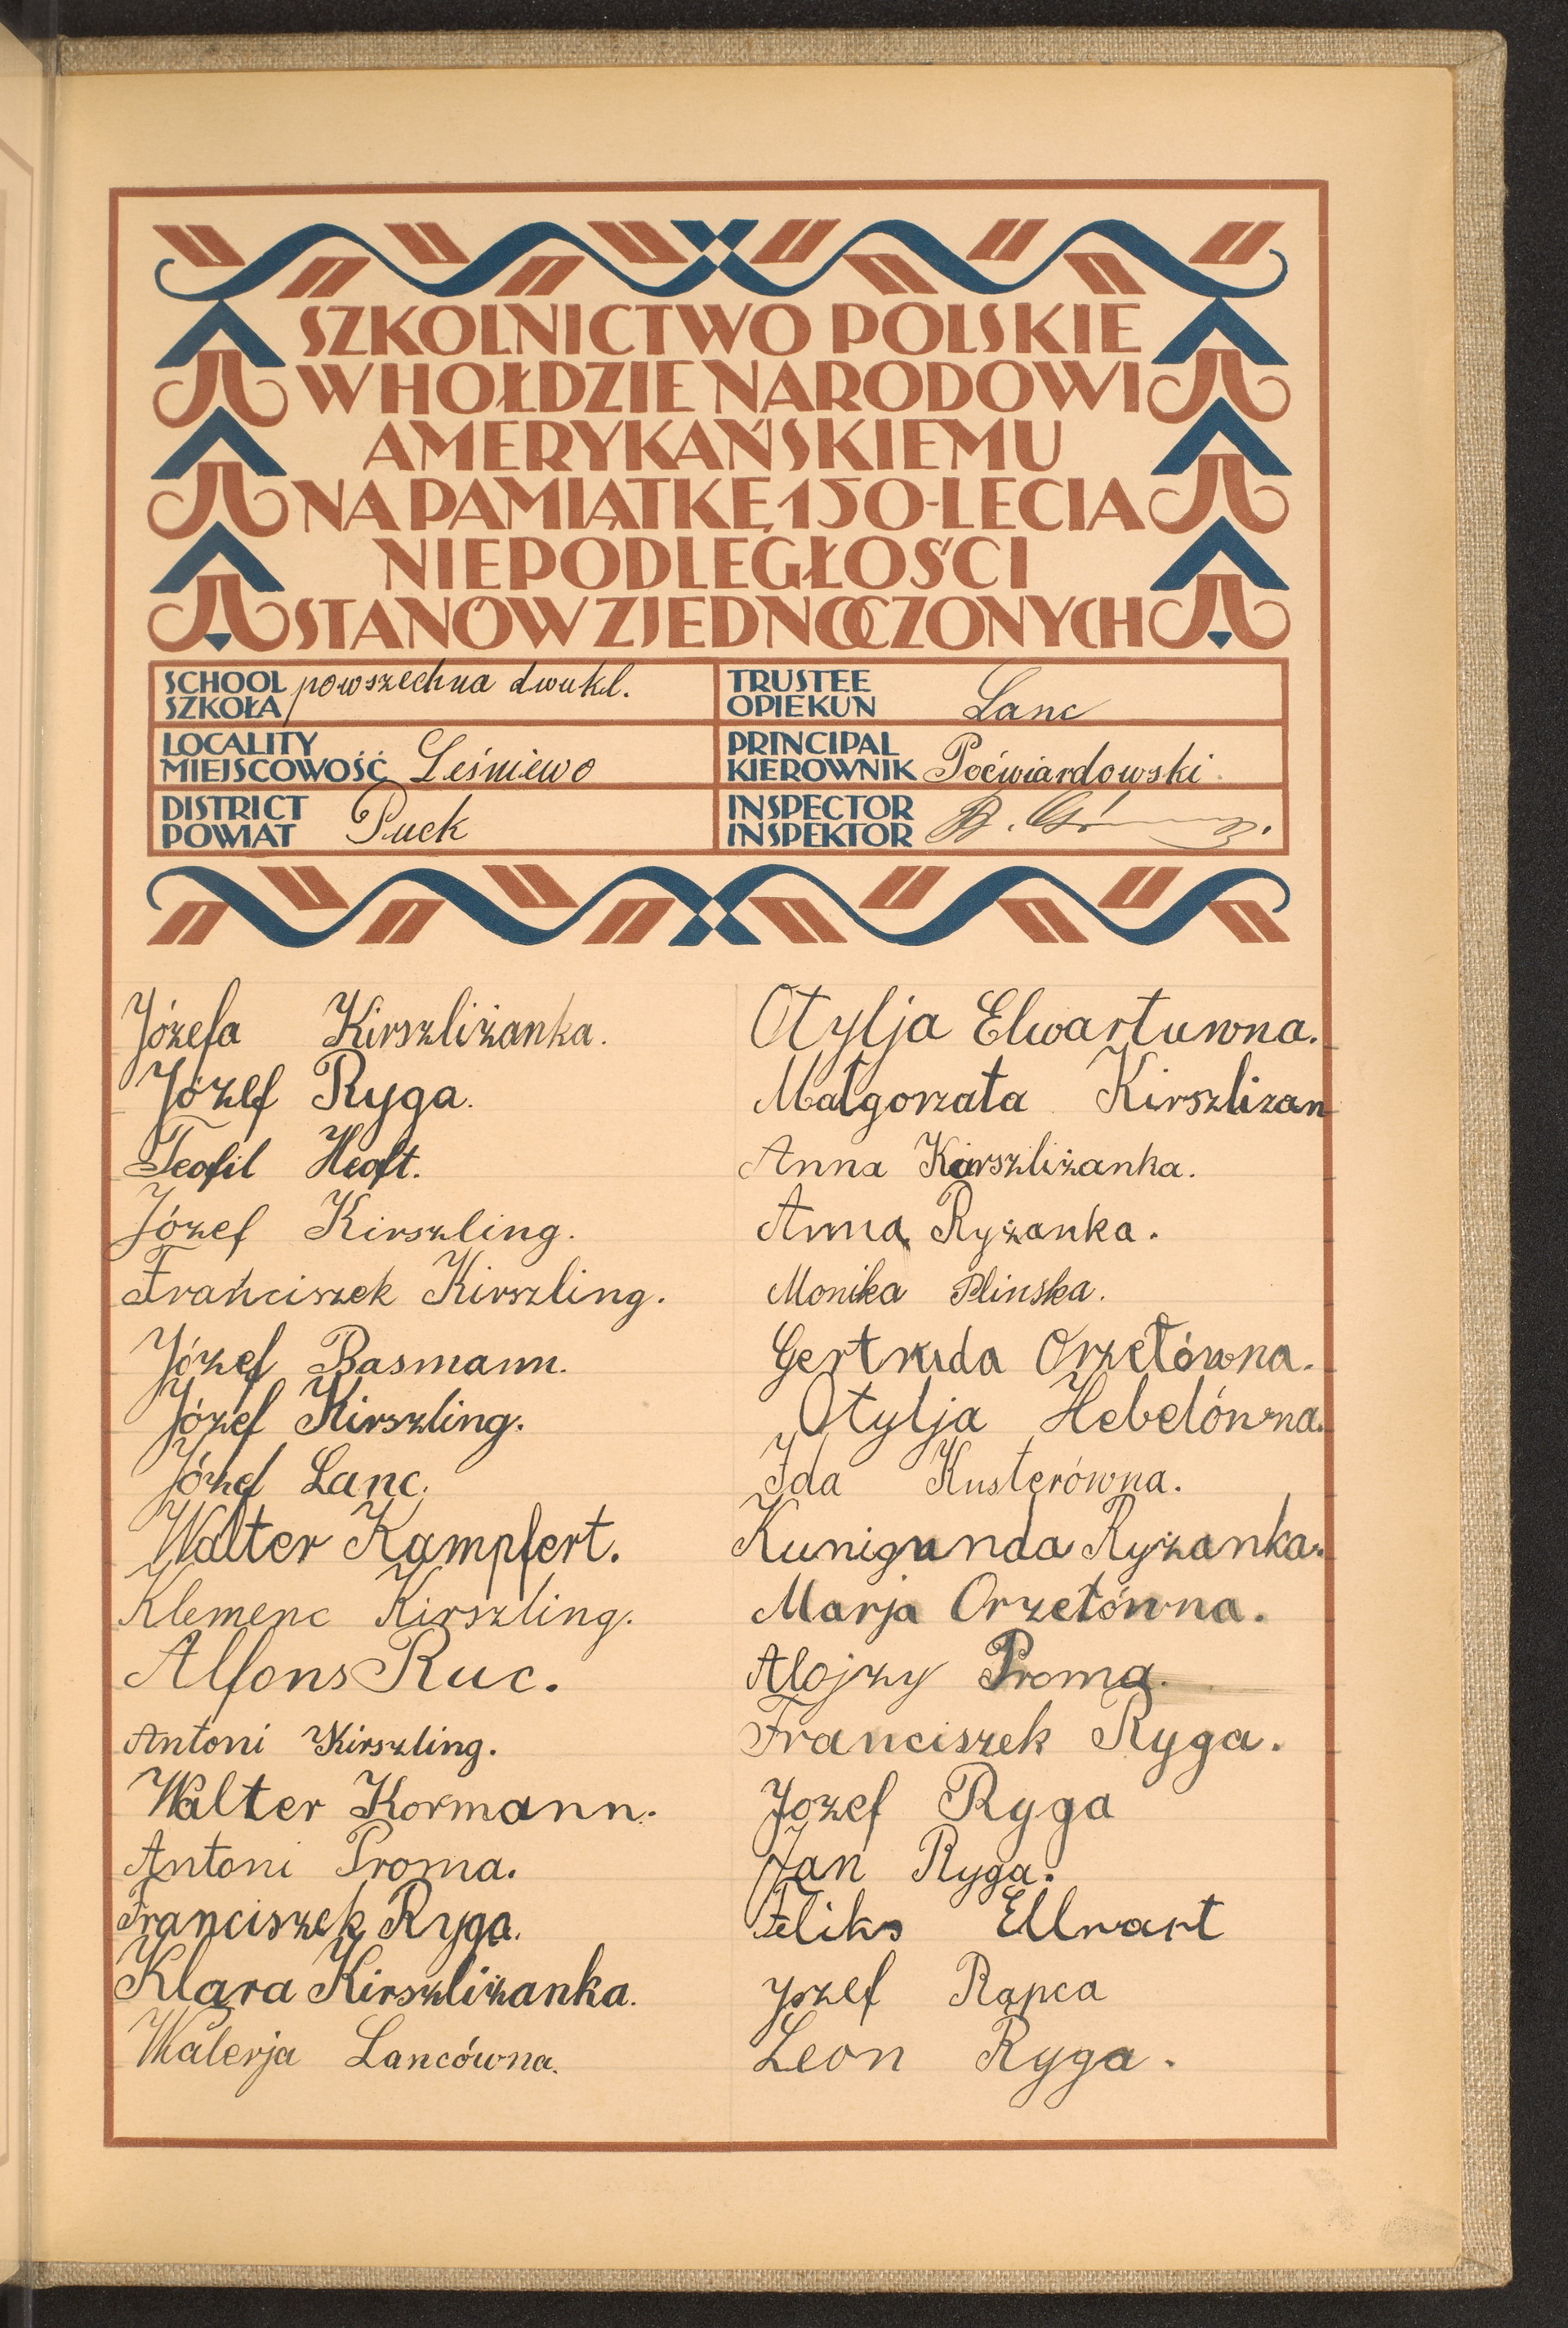 SZKOLNICTWO POLSKIE
W HOŁDZIE NARODOWI
AMERYKAŃSKIEMU
NA PAMIĄTKĘ 150-LECIA
NIEPODLEGŁOŚCI
STANÓW ZJEDNOCZONYCH
SCHOOL
SZKOŁA powszechna dwukl.
TRUSTEE
OPIEKUN Lanc
LOCALITY
MIEJSCOWOŚĆ Leśniewo
PRINCIPAL
KIEROWNIK Poćwiardowski
DISTRICT
POWIAT Puck
INSPECTOR
INSPEKTOR B.
Józefa Kirszliżanka.
Józef Ryga.
Teofil Heoft.
Józef Kirszling.
Frańciszek Kirszling.
Józef Basmann.
Józef Kirszling.
Józef Lanc.
Walter Kampfert.
Klemenc Kirszling.
Alfons Ruc.
Antoni Kirszling.
Walter Kormann.
Antoni Proma.
Franciszek Ryga.
Klara Kirszliżanka.
Walerja Lancówna.
Otylja Elwartuwna.
Małgorzata Kirszlizan
Anna Karszliżanka.
Anna Ryżanka.
Monika Plinska.
Gertruda Orzełówna.
Otylja Hebelówna.
Ida Kusterówna.
Kunigunda Ryżanka.
Marja Orzełówna.
Alojzy Proma.
Franciszek Ryga.
Jozef Ryga
Jan Ryga.
Feliks Ellwart
Jozef Rąpca
Leon Ryga.